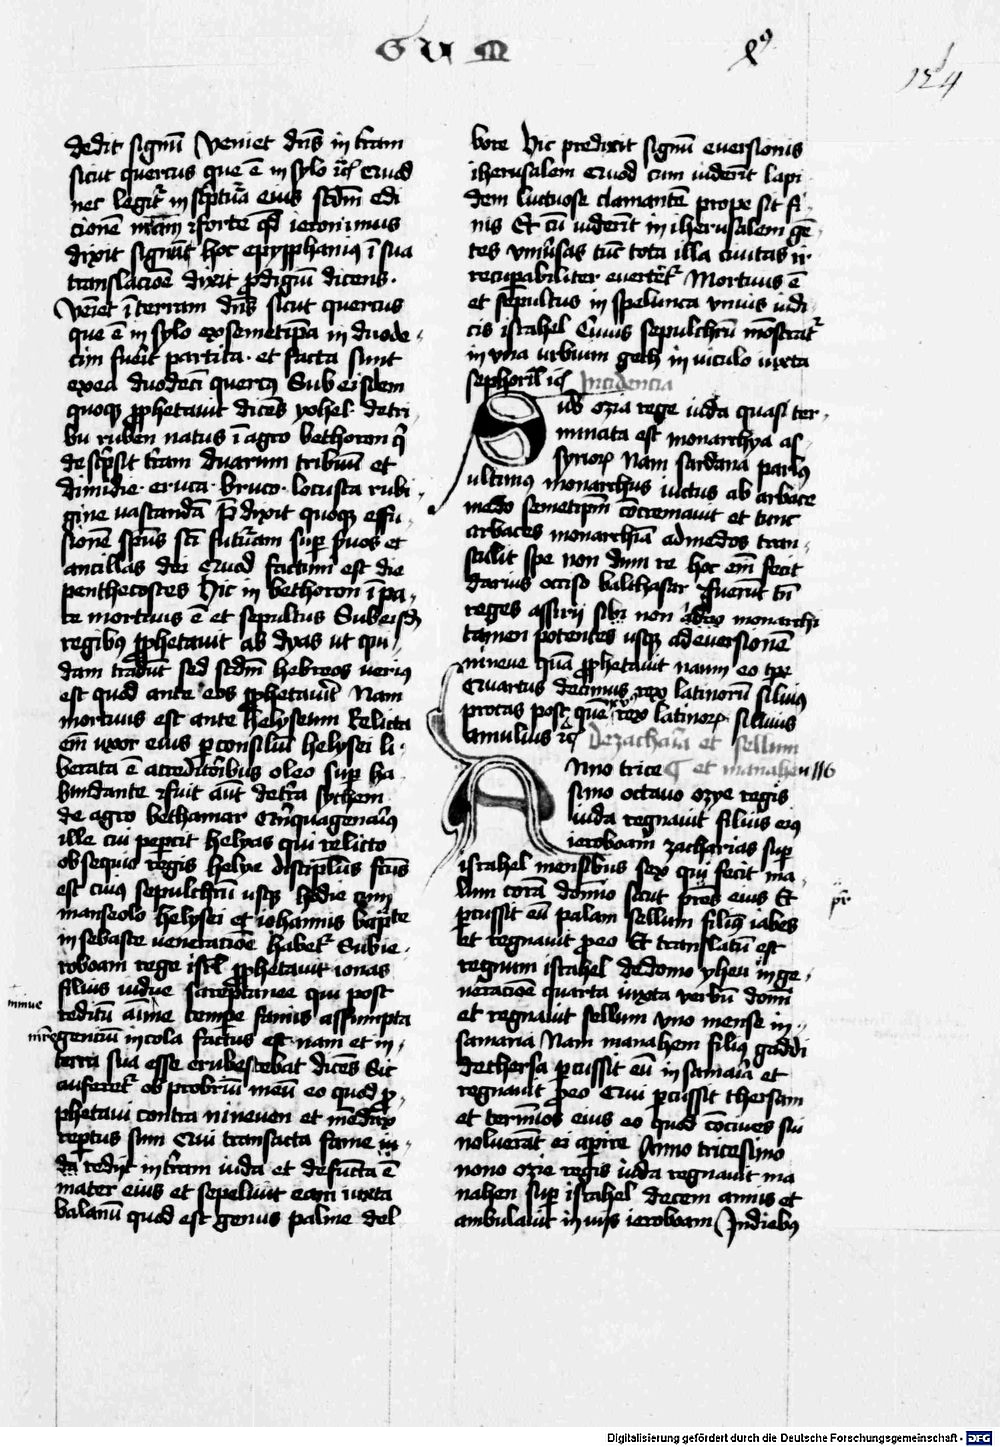 G U M
124
dedit signū Veniet dn̄s in t̄ram
sicut quercus que ē in sylo ⁊c̄ Quod
nec legit᷑ in sc̄ptura eius scdm̄ edi
cionē n̄ram ⁊ forte qd̄ ieronimus
dixit signū hoc epyphanius ī sua
translacōe dixit ꝓdigiū dicens ·
Veīet ī terram dn̄s sicut quercus
que ē in sylo ex semetip̄a in duode-
cim fuerit partita · et facta sunt
ex ea duodecī quercus Sub eisdem
quoqꝫ ꝓphetauit dicēs yohel · de tri-
bu ruben natus ī agro bethoron q̄
descpsit t̄ram duarum tribuū et
dimidie · eruca · bruco · locusta rubi-
gine uastandā P̄dixit quoqꝫ effu-
sionē sp̄us sc̄i futuram suꝑ s̄uos et
ancillas dei Quod factum est die
penthecostes Hic in bethoron ī pa-
ce mortuus ē et sepultus Sub eisdē
regibus ꝓphetauit abdyas ut qui-
dam tradūt sed scdm̄ hebreos verius
est quod ante eos ꝓphetauit Nam
mortuus est ante helyseum Relicta
em̄ uxor eius ꝑ consiliū helysei li-
berata ē a creditoribus oleo suꝑ ha
bundante ⁊ fuit aūt de t̄ra sychem
de agro bethamar Qinquagenariꝰ
ille cui peꝑcit helyas qui relicto
obsequio regis helye discipulus fctūs
est cuiꝰ sepulchrū usqꝫ hodie cum
mauseolo helysei et iohannis bap̄te
in sebaste ueneracōe habet᷑ Sub ie-
roboam rege isrl̄ ꝓphetauit ionas
filius uidue sareptanee qui post
reditū aīme tempe famis assumpta
m̄re gentiū incola factus est nam et in-
terra sua esse erubescebat dicēs Sic
auferet᷑ obprobriū meū eo quod ꝓ-
phetaui contra nineuen et mendax
reptus sum Qui transacta fame iu-
da redijt in t̄ram iuda et defuncta ē
mater eius et sepeliuit eam iuxta
balanū quod est genus palme del
bore Hic predixit signū euersionis
iherusalem Quod cum uiderit lapi
dem luctuose clamantē prope sit fi-
nis Et cū uiderit in iherusalem gē-
tes vniūsas tūc tota illa ciuitas ir
recuꝑabiliter euertet᷑ Mortuus ē
et sepultus in spelunca vnius iudi-
cis israhel Cuius sepulchrū mōstrat᷑
in vna urbium geth in uiculo iuxta
sephorī ⁊c̄ Incidencia
Sub ozia rege iuda quasi ter-
minata est monarchya as-
syrioꝝ Nam sardana palus
ultimus monarchus iuctus ab arbace
medo semetipm̄ cōcremauit et tunc
arbaces monarchiā ad medos tran-
stulit spe non dum re hoc em̄ fecit
darius occiso balthasar fuerūt tn̄
reges assirij sibi non adeo monarchi
tamen potentes usqꝫ ad euersionē
nineue quā ꝓphetauit naum eo tp̄e
Quartus decimus rex latinorū siluius
protas post quē xv rex latinoꝝ siluius
amulius ⁊c̄ De zacharia et sellum
Anno trice et manahen 116
simo octauo ozye regis
iuda regnauit filius eiꝰ
ieroboam zacharias suꝑ
israhel mensibus sex qui fecit ma-
lum corā domīo sicut pr̄es eius Et
ꝑcussit eū palam sellum filiꝰ iabes
et regnauit ꝑ eo Et translatū est
regnum israhel de domo yheu in ge-
neracōe quarta iuxta verbū domī
et regnauit sellum vno mense in-
samaria Nam manahem filiꝰ gaddi
de thersa ꝑcussit eū in samaria et
regnauit ꝑ eo Qui ꝑcussit thersam
et termīos eius eo quod cōciues sui
noluerāt ei aperire Anno tricesimo
nono ozie regis iuda regnauit ma
nahen suꝑ israhel decem annis et
ambulauit in uijs ieroboam In diebꝰ
Digitalisierung gefördert durch die Deutsche Forschungsgemeinschaft - DFG